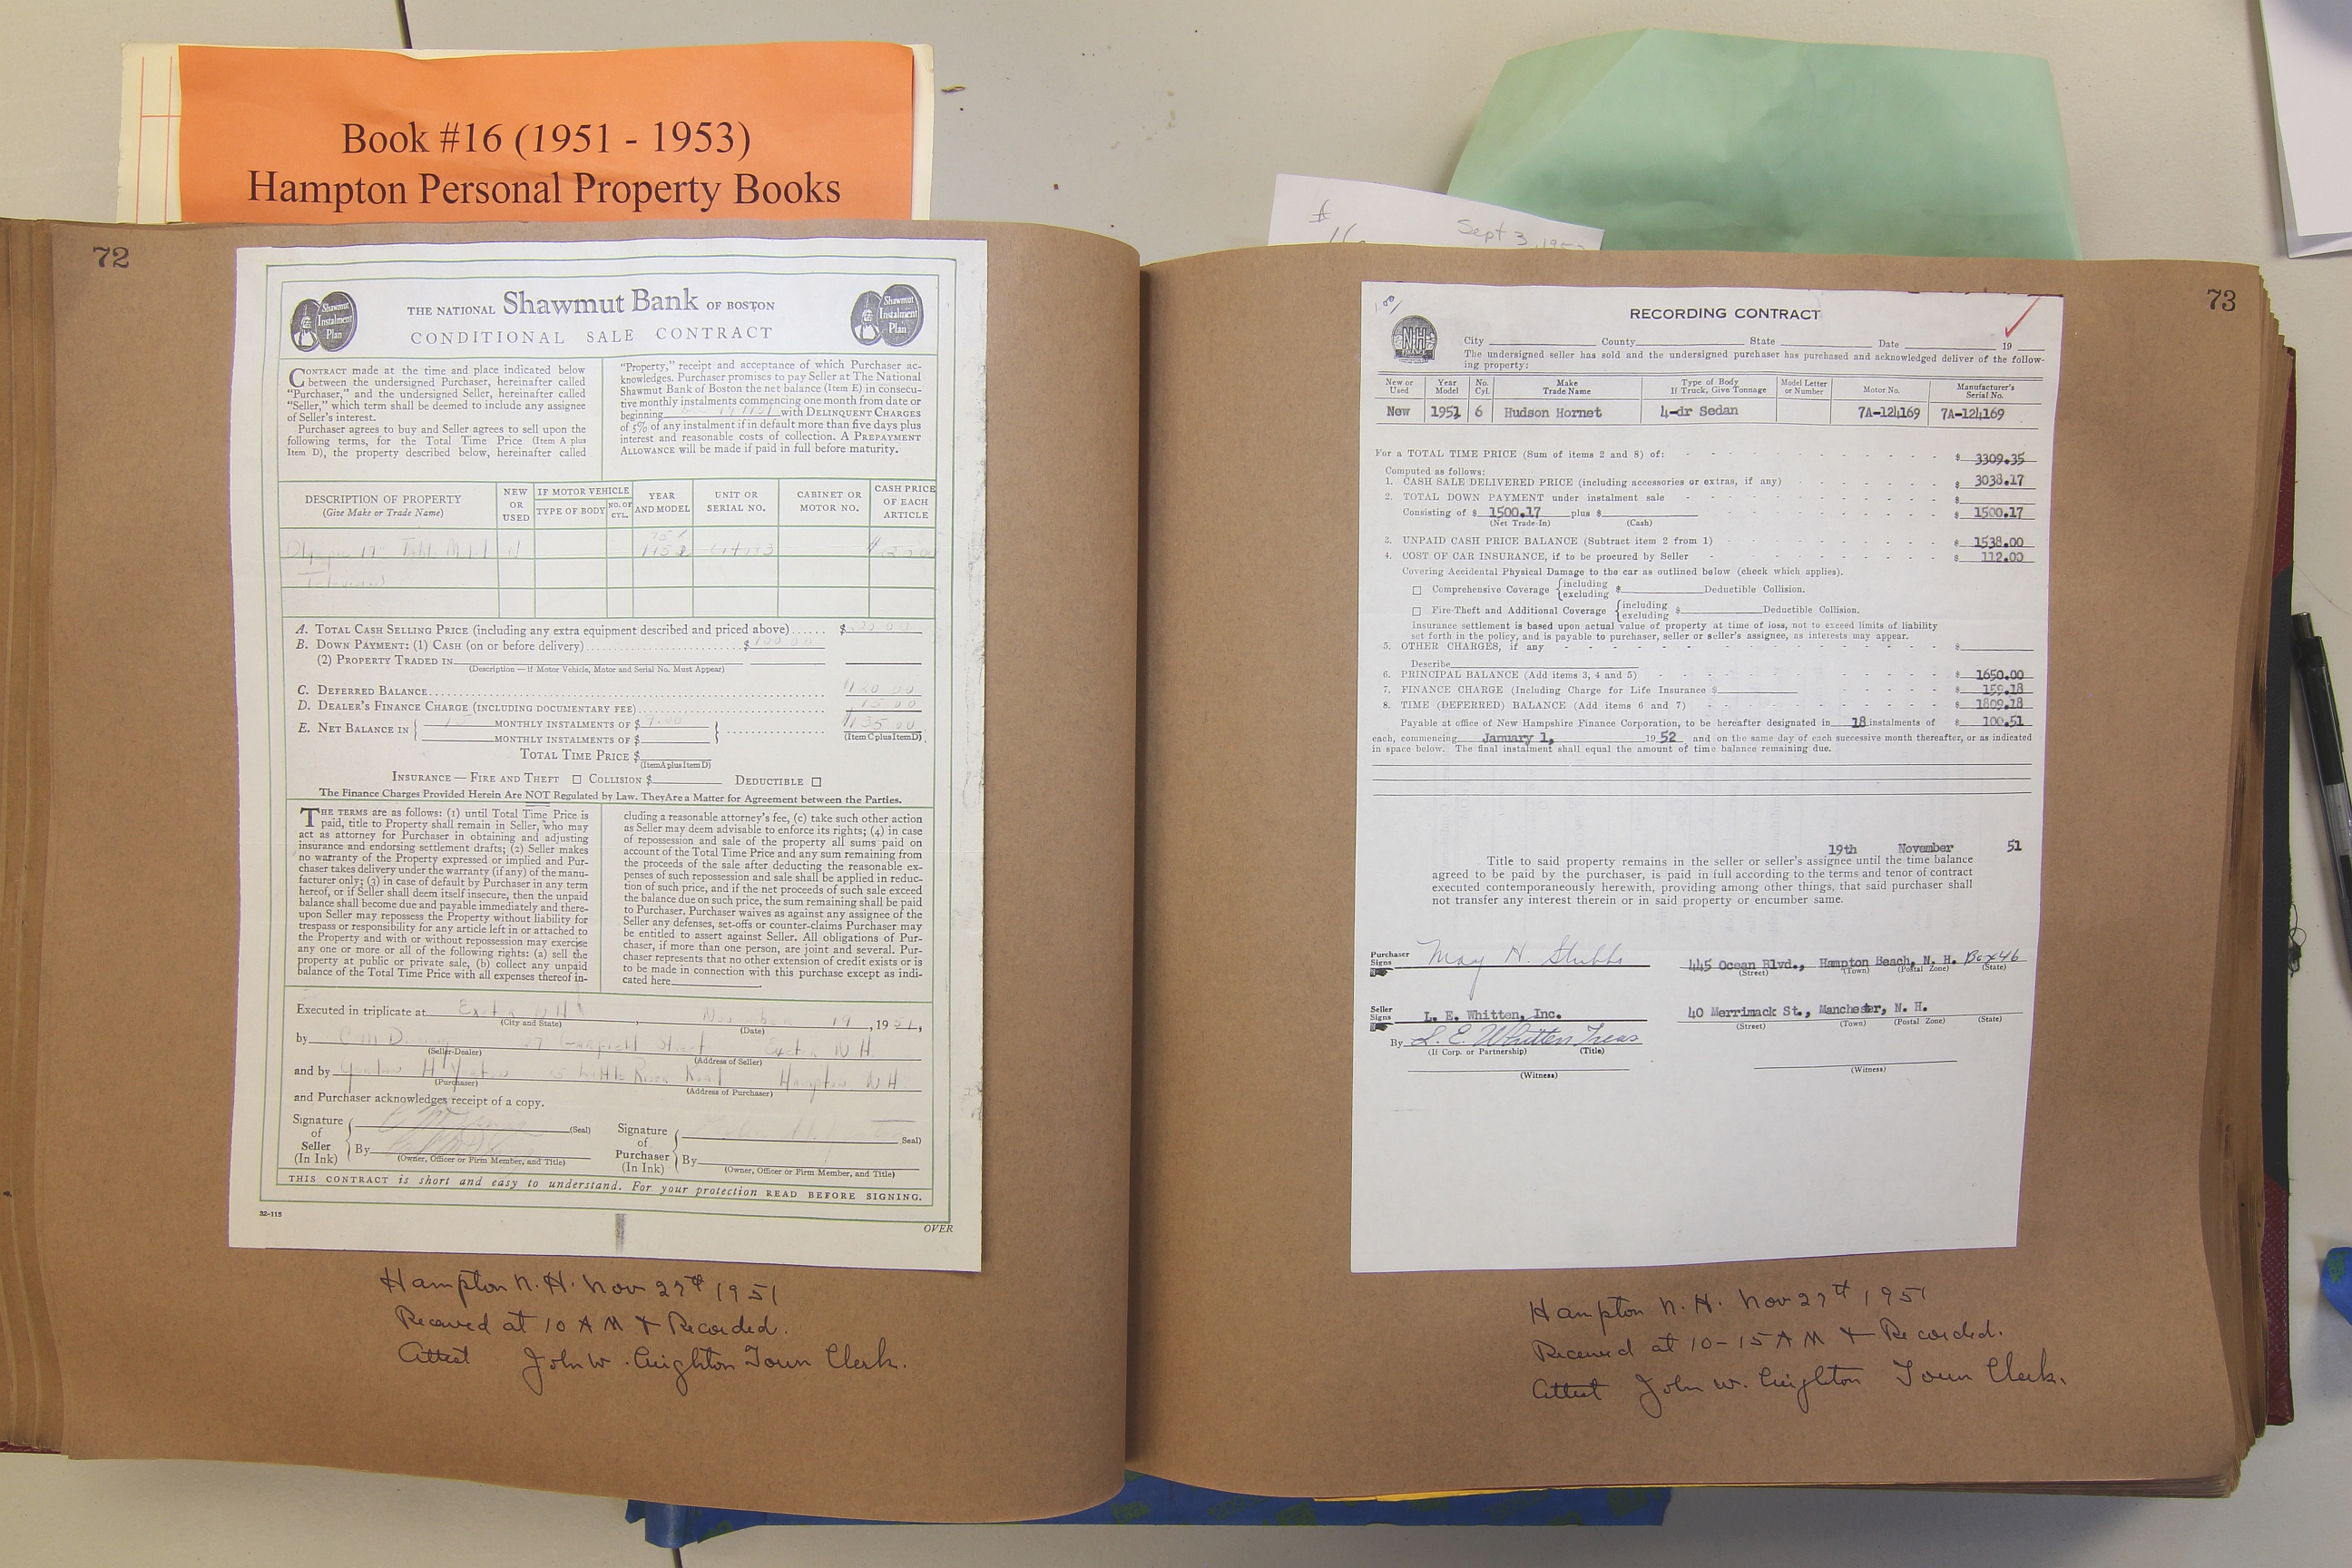 Book #16 (1951 - 1953)
Hampton Personal Property Books
#
16
Sept 3, 195
72
Shawmut
Instalment
Plan
THE NATIONAL Shawmut Bank OF BOSTON
CONDITIONAL SALE CONTRACT
Shawmut
Instalment
Plan
CONTRACT made at the time and place indicated below
between the undersigned Purchaser, hereinafter called
"Purchaser," and the undersigned Seller, hereinafter called
"Seller," which term shall be deemed to include any assignee
of Seller's interest.
Purchaser agrees to buy and Seller agrees to sell upon the
following terms, for the Total Time Price (Item A plus
Item D), the property described below, hereinafter called
"Property," receipt and acceptance of which Purchaser ac-
knowledges. Purchaser promises to pay Seller at The National
Shawmut Bank of Boston the net balance (Item E) in consecu-
tive monthly instalments commencing one month from date or
beginning 19 1951 with DELINQUENT CHARGES
of 5% of any instalment if in default more than five days plus
interest and reasonable costs of collection. A PREPAYMENT
ALLOWANCE will be made if paid in full before maturity.
DESCRIPTION OF PROPERTY
(Give Make or Trade Name)
NEW
OR
USED
IF MOTOR VEHICLE
TYPE OF BODY
NO. OF
CYL.
YEAR
AND MODEL
UNIT OR
SERIAL NO.
CABINET OR
MOTOR NO.
CASH PRICE
OF EACH
ARTICLE
17" Table Model N 1952
Television
A. TOTAL CASH SELLING PRICE (including any extra equipment described and priced above)...... $
B. DOWN PAYMENT: (1) CASH (on or before delivery)........ $100 00
(2) PROPERTY TRADED IN
(Description — if Motor Vehicle, Motor and Serial No. Must Appear)
C. DEFERRED BALANCE........ $120 00
D. DEALER'S FINANCE CHARGE (INCLUDING DOCUMENTARY FEE)........ 15 00
E. NET BALANCE IN { 15 MONTHLY INSTALMENTS OF $9.00 } ........ $135 00
MONTHLY INSTALMENTS OF $
(Item C plus Item D)
TOTAL TIME PRICE $
(Item A plus Item D)
INSURANCE — FIRE AND THEFT ☐ COLLISION $ DEDUCTIBLE ☐
The Finance Charges Provided Herein Are NOT Regulated by Law. They Are a Matter for Agreement between the Parties.
THE TERMS are as follows: (1) until Total Time Price is
paid, title to Property shall remain in Seller, who may
act as attorney for Purchaser in obtaining and adjusting
insurance and endorsing settlement drafts; (2) Seller makes
no warranty of the Property expressed or implied and Pur-
chaser takes delivery under the warranty (if any) of the manu-
facturer only; (3) in case of default by Purchaser in any term
hereof, or if Seller shall deem itself insecure, then the unpaid
balance shall become due and payable immediately and there-
upon Seller may repossess the Property without liability for
trespass or responsibility for any article left in or attached to
the Property and with or without repossession may exercise
any one or more or all of the following rights: (a) sell the
property at public or private sale, (b) collect any unpaid
balance of the Total Time Price with all expenses thereof in-
cluding a reasonable attorney's fee, (c) take such other action
as Seller may deem advisable to enforce its rights; (4) in case
of repossession and sale of the property all sums paid on
account of the Total Time Price and any sum remaining from
the proceeds of the sale after deducting the reasonable ex-
penses of such repossession and sale shall be applied in reduc-
tion of such price, and if the net proceeds of such sale exceed
the balance due on such price, the sum remaining shall be paid
to Purchaser. Purchaser waives as against any assignee of the
Seller any defenses, set-offs or counter-claims Purchaser may
be entitled to assert against Seller. All obligations of Pur-
chaser, if more than one person, are joint and several. Pur-
chaser represents that no other extension of credit exists or is
to be made in connection with this purchase except as indi-
cated here.
Executed in triplicate at Exeter N H, November 19, 1951,
(City and State) (Date)
by 27 Garfield Street Exeter N H.
(Seller-Dealer) (Address of Seller)
and by Gordon H 25 Little River Road Hampton N H.
(Purchaser) (Address of Purchaser)
and Purchaser acknowledges receipt of a copy.
Signature
of
Seller
(In Ink)
(Seal)
By
(Owner, Officer or Firm Member, and Title)
Signature
of
Purchaser
(In Ink)
Seal)
By
(Owner, Officer or Firm Member, and Title)
THIS CONTRACT is short and easy to understand. For your protection READ BEFORE SIGNING.
32-115
OVER
Hampton N. H. Nov 27th 1951
Received at 10 A M & Recorded.
Attest John W. Creighton Town Clerk.
73
1.00/
NH
FINANCE
RECORDING CONTRACT
City County State Date 19
The undersigned seller has sold and the undersigned purchaser has purchased and acknowledged deliver of the follow-
ing property:
New or
Used
Year
Model
No.
Cyl.
Make
Trade Name
Type of Body
If Truck, Give Tonnage
Model Letter
or Number
Motor No.
Manufacturer's
Serial No.
New 1951 6 Hudson Hornet 4-dr Sedan 7A-124169 7A-124169
For a TOTAL TIME PRICE (Sum of items 2 and 8) of: $ 3309.35
Computed as follows:
1. CASH SALE DELIVERED PRICE (including accessories or extras, if any) $ 3038.17
2. TOTAL DOWN PAYMENT under instalment sale $
Consisting of $ 1500.17 plus $ $ 1500.17
(Net Trade-In) (Cash)
3. UNPAID CASH PRICE BALANCE (Subtract item 2 from 1) $ 1538.00
4. COST OF CAR INSURANCE, if to be procured by Seller $ 112.00
Covering Accidental Physical Damage to the car as outlined below (check which applies).
☐ Comprehensive Coverage {including excluding $ Deductible Collision.
☐ Fire-Theft and Additional Coverage {including excluding $ Deductible Collision.
Insurance settlement is based upon actual value of property at time of loss, not to exceed limits of liability
set forth in the policy, and is payable to purchaser, seller or seller's assignee, as interests may appear.
5. OTHER CHARGES, if any $
Describe
6. PRINCIPAL BALANCE (Add items 3, 4 and 5) $ 1650.00
7. FINANCE CHARGE (Including Charge for Life Insurance $ $ 159.18
8. TIME (DEFERRED) BALANCE (Add items 6 and 7) $ 1809.18
Payable at office of New Hampshire Finance Corporation, to be hereafter designated in 18 instalments of $ 100.51
each, commencing January 1, 1952 and on the same day of each successive month thereafter, or as indicated
in space below. The final instalment shall equal the amount of time balance remaining due.
19th November 51
Title to said property remains in the seller or seller's assignee until the time balance
agreed to be paid by the purchaser, is paid in full according to the terms and tenor of contract
executed contemporaneously herewith, providing among other things, that said purchaser shall
not transfer any interest therein or in said property or encumber same.
Purchaser
Signs May H. Stubbs 445 Ocean Blvd., Hampton Beach, N. H. Box 46
(Street) (Town) (Postal Zone) (State)
Seller
Signs L. E. Whitten, Inc. 40 Merrimack St., Manchester, N. H.
(Street) (Town) (Postal Zone) (State)
By L. E. Whitten Treas
(If Corp. or Partnership) (Title)
(Witness) (Witness)
Hampton N. H. Nov 27th 1951
Received at 10-15 A M & Recorded.
Attest John W. Creighton Town Clerk.